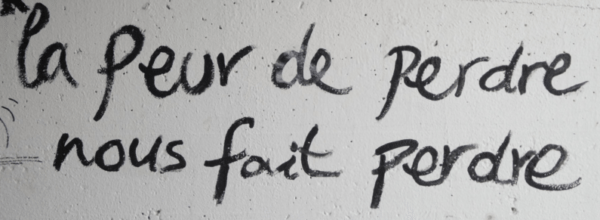 la peur de perdre
nous fait perdre